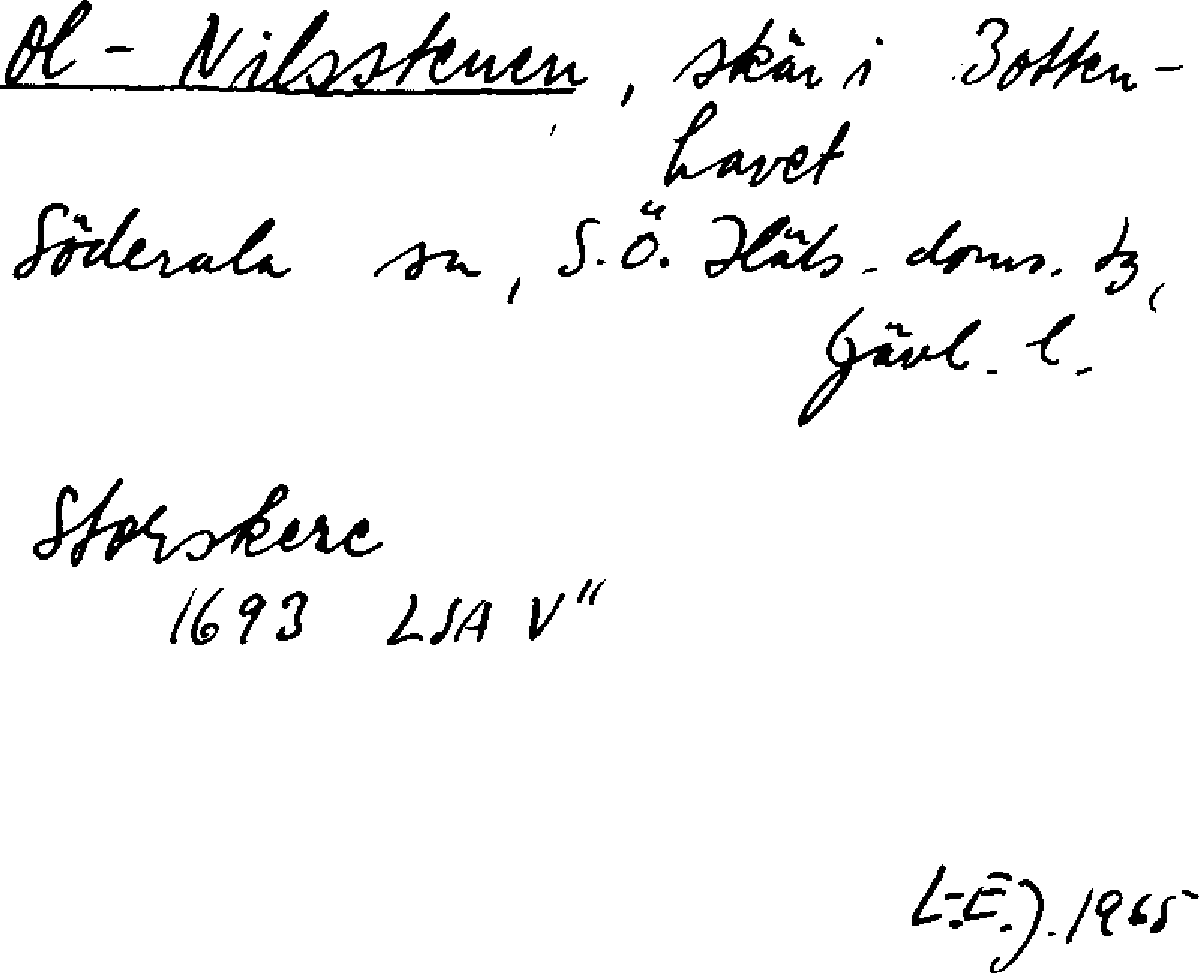 Ol-Nilsstenen, skär i Botten-
havet
Söderala sn, S.Ö. Häls. doms. tg,
Gävl. l.
Storskere
1693 LSA V"
L.E.J. 1965